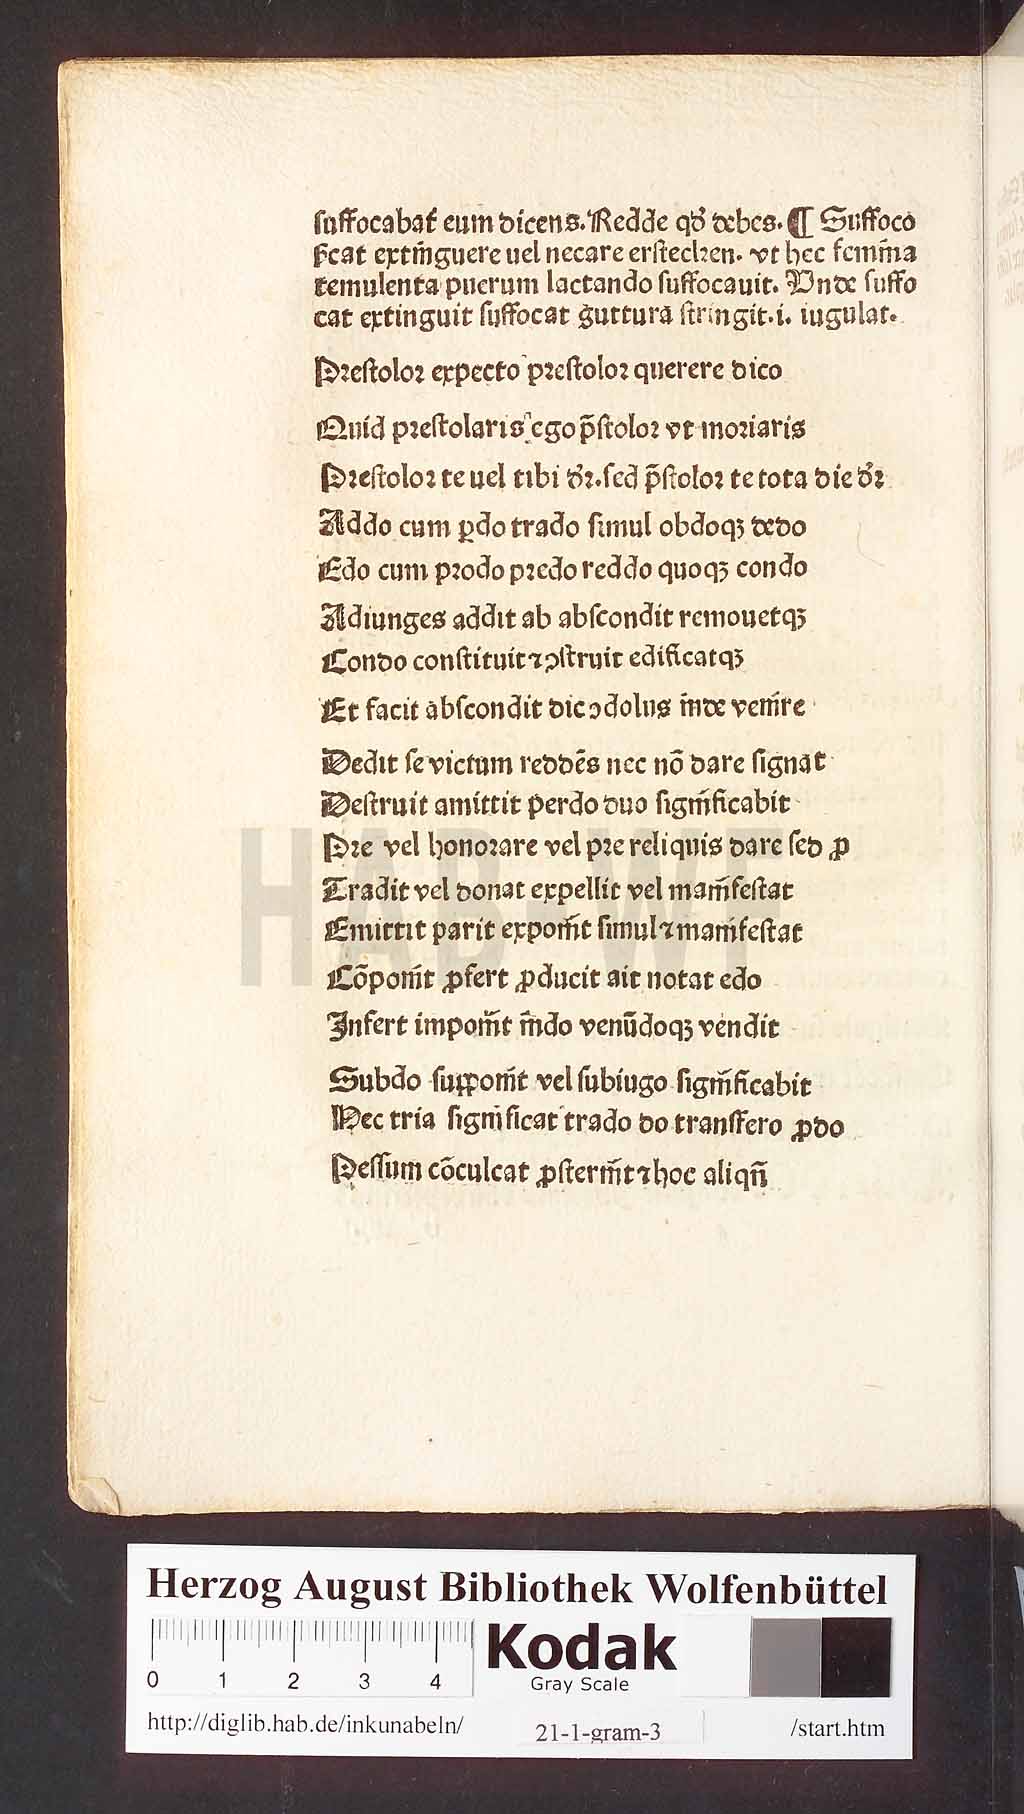 ſuffocabat᷑ eum dicens. Redde qd̓ debes. ¶ Suffoco
ſicat extīguere uel necare erſtecken. vt hec femīna
temulenta puerum lactando ſuffocauit. Vnde ſuffo
cat extinguit ſuffocat guttura ſtringit .i. iugulat.
Preſtolor expecto preſtolor querere dico
Quid preſtolaris ego p̄ſtolor vt moriaris
Preſtolor te uel tibi dr̓. ſed p̄ſtolor te tota die dr̓
Addo cum ꝑdo trado ſimul obdoqꝫ dedo
Edo cum prodo predo reddo quoqꝫ condo
Adiunges addit ab abſcondit remouetqꝫ
Condo conſtituit ⁊ ꝯſtruit edificatqꝫ
Et facit abſcondit dic ꝯdolus īnde venīre
Dedit ſe victum reddēs nec nō dare ſignat
Deſtruit amittit perdo duo ſignīficabit
Pre vel honorare vel pre reliquis dare ſed ꝓ
Tradit vel donat expellit vel manīfeſtat
Emittit parit exponīt ſimul ⁊ manīfeſtat
Cōponīt ꝓfert ꝓducit ait notat edo
Infert imponīt īndo venūdoqꝫ vendit
Subdo ſupponīt vel ſubiugo ſignīficabit
Hec tria ſignificat trado do tranſfero ꝓdo
Peſſum cōculcat ꝓſternīt ⁊ hoc aliqn̄
HAB WF
Herzog August Bibliothek Wolfenbüttel
0 1 2 3 4
Kodak
Gray Scale
http://diglib.hab.de/inkunabeln/ 21-1-gram-3 /start.htm